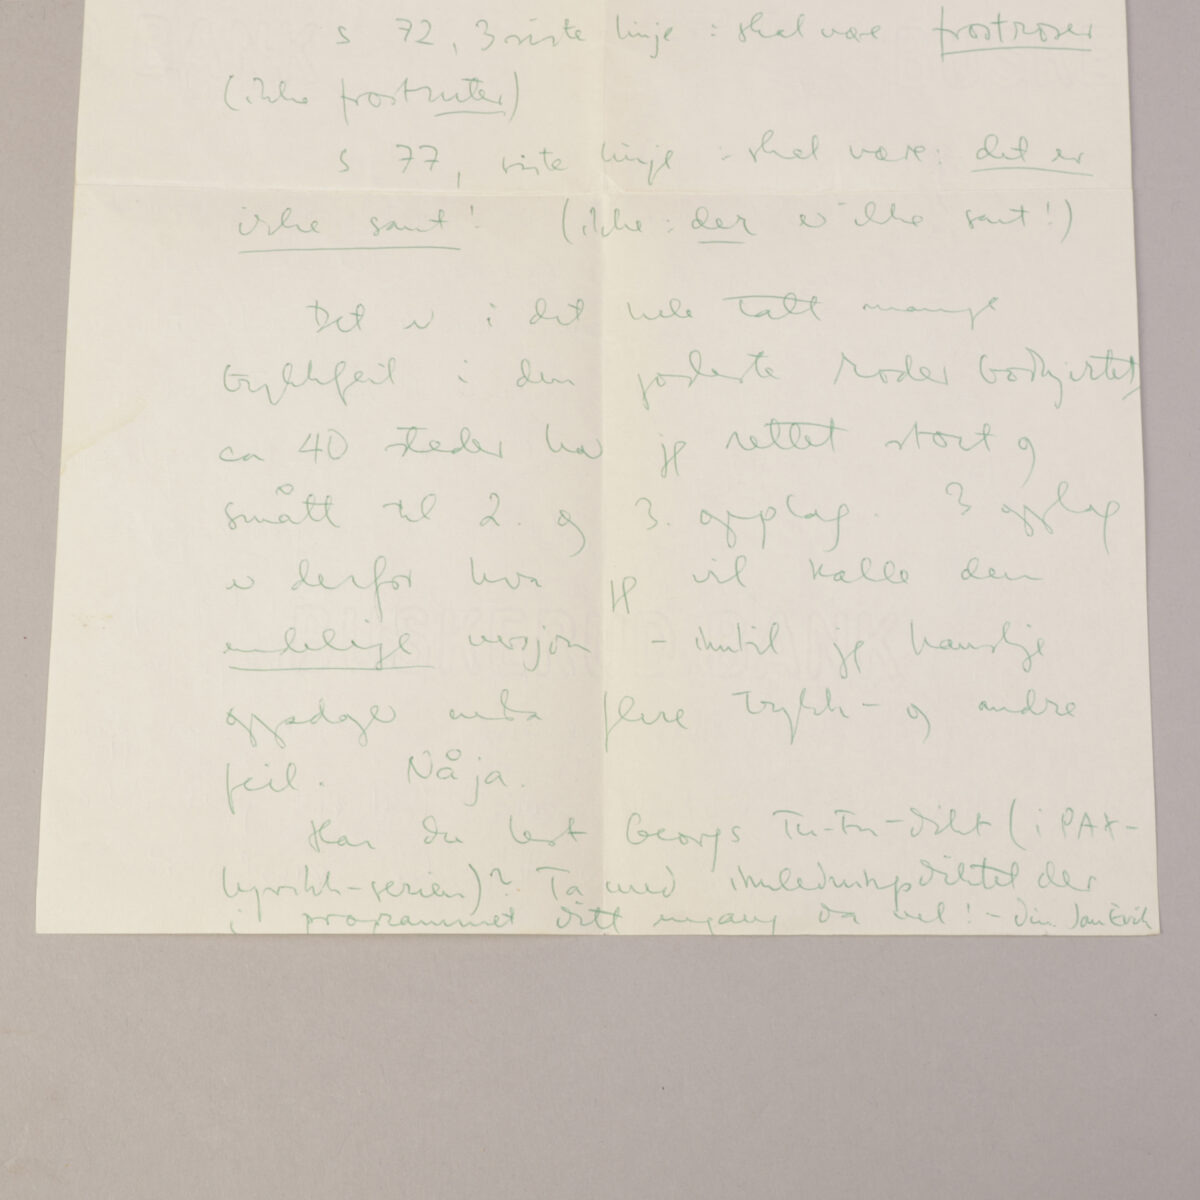 s 72, 3 siste linje : skal være frostroser
(ikke frostruter)
s 77, siste linje : skal være: det er
ikke sant! (ikke : der er ikke sant!)
Det er i det hele tatt mange
trykkfeil i den
ca 40 steder har jeg rettet stort og
smått til 2. og 3. opplag. 3 opplag
er derfor hva jeg vil kalle den
endelige versjon – inntil jeg kanskje
oppdager enda flere trykk- og andre
feil. Nå ja.
Har du lest Georgs Tu-Fu-dikt (i PAX-
lyrikk-serien)? Ta med innledningsdiktet der
i programmet ditt engang da vel! – din Jan Erik